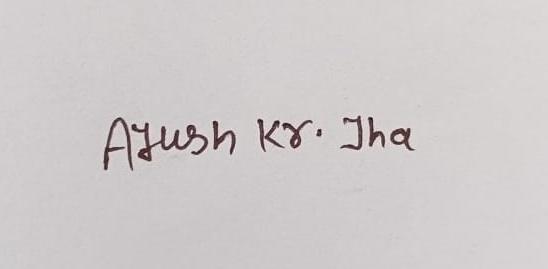 Ayush Kr. Jha